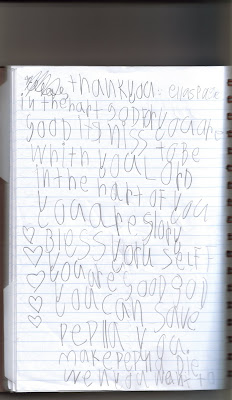 thank you
in the hart God for you are
Good it is niss to be
whith you Lord
in the hart of you
you are Glory
Bless your self
you are Good God
you can save
pepll a you
make pepll die
wen you want to